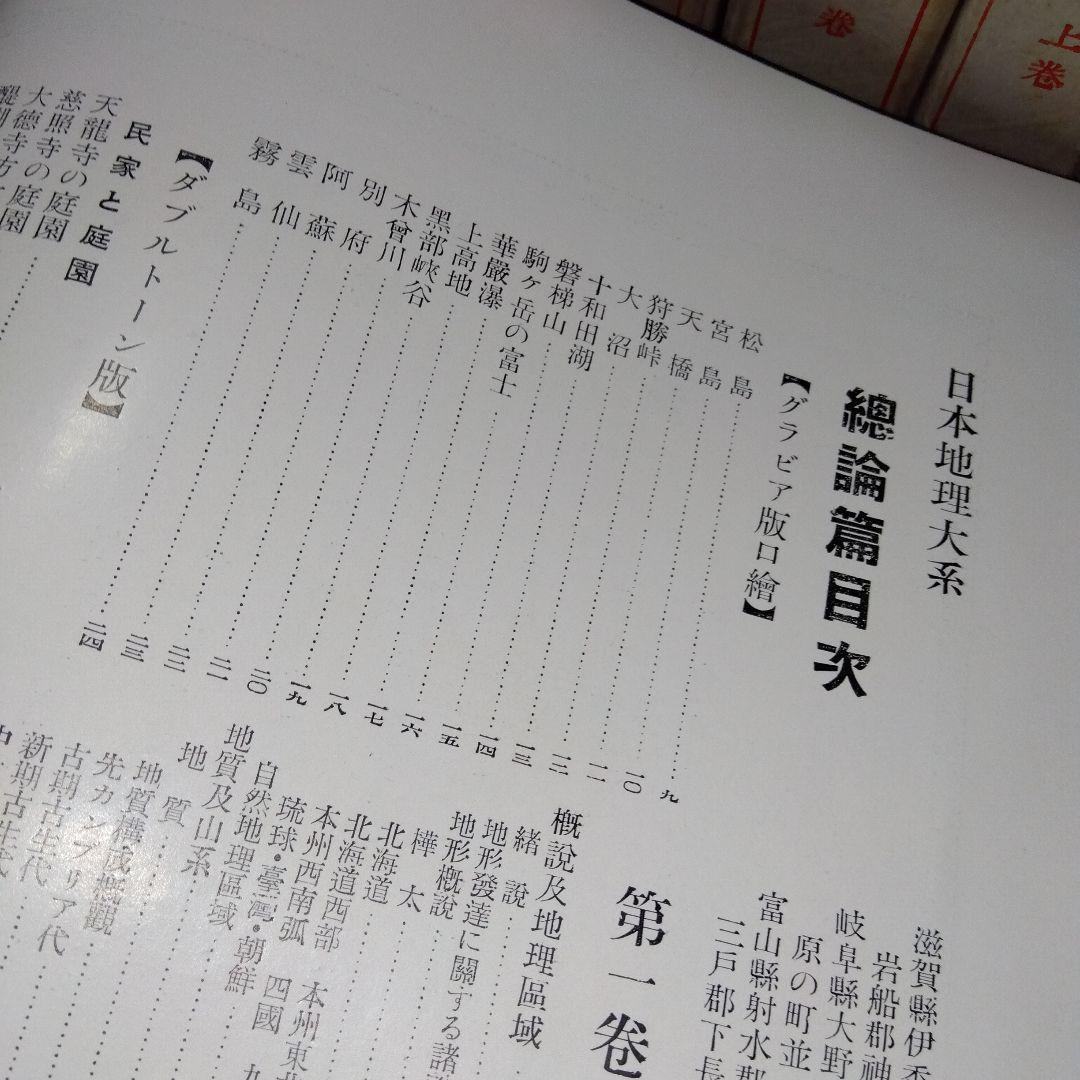 日本地理大系
總論篇目次
【グラビア版口繪】
松島……九
宮島……一〇
天橋……一一
狩勝峠……一二
大沼……一三
十和田湖……一四
磐梯山……一五
駒ヶ岳の富士……一六
華嚴瀑……一七
上高地……一八
黑部峽谷……一九
木曾川……二〇
別府……二一
阿蘇……二二
雲仙……二三
霧島……二四
【ダブルトーン版】
民家と庭園
天龍寺の庭園
慈照寺の庭園
大德寺の庭園
滋賀縣伊香
岩船郡神
岐阜縣大野
原の町並
富山縣射水郡
三戸郡下長
第一卷
概說及地理區域
緒說
地形發達に關する諸
地形概說
樺太
北海道
北海道西部 本州東北
本州西南弧 四國 九
琉球・臺灣・朝鮮
自然地理區域
地質及山系
地質
地質構成概觀
先カンブリア代
古期古生代
新期古生代
卷
上卷